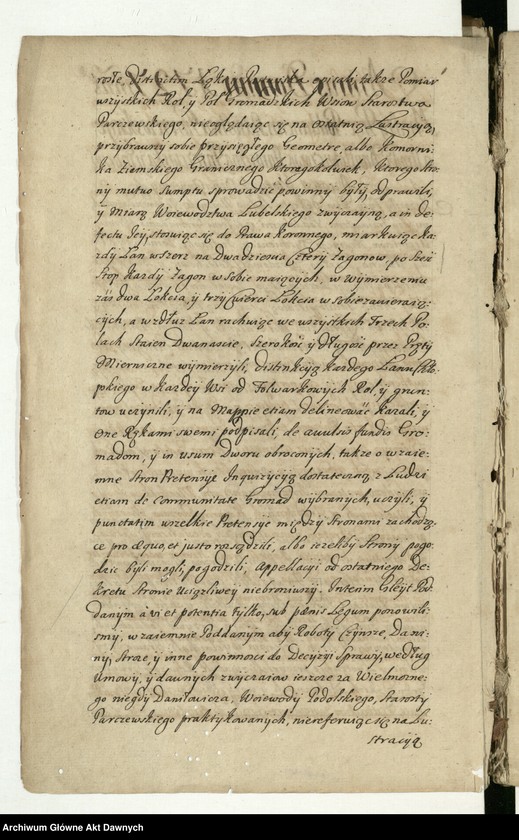 rosłe, distinctim Łąki, Pastwiska opisali, także Pomiar
wszystkich Rol, y Pol Gromadzkich Wsiow Starostwa
Parczewskiego, nieoglądaiąc się na Ostatnią Lustracyią,
przybrawszy sobie przysięgłego Geometrę, albo Komorni-
ka Ziemskiego Granicznego ktoregokolwiek, ktorego Stro-
ny mutuo Sumptu sprowadzić powinny były, odprawili,
y Miarą Woiewodztwa Lubelskiego zwyczayną, a in de-
fectu Jey, stosuiąc się do Prawa Koronnego, miarkuiąc Ka-
zdy Łan wszerz na Dwadziescia Cztery Zagonow, po Szesc
Stop Kazdy Zagon w Sobie maiących, w wymierzeniu
zas dwa Łokcia, y trzy Cwierci Łokcia w Sobie zawieraią-
cych, a wzdłuz Łan rachuiąc we wszystkich Trzech Po-
lach Staien Dwanascie, Szerokosc y długosc przez Pręty
Miernicze wymierzyli, distinkcyią kazdego Łanu Chło-
pskiego w Kazdey Wsi od Folwarkowych Rol, y grun-
tow uczynili, y na Mappie etiam delineować Kazali, y
One Rękami swemi podpisali, de avulsis fundis Gro-
madom, y in usum Dworu obroconych, także o wzaie-
mne Stron Pretensye Inquizycyią dostateczną z Ludzi
etiam de Communitate Gromad wybranych, uczyli, y
punctatim wszelkie Pretensye między Stronami zachodzą-
ce pro æquo, et justo rozsądzili, albo iezeliby Strony pogo-
dzic byli mogli, pogodzili, Appellacyi od ostatniego De-
kretu Stronie Uciązliwey niebroniwszy. Interim Gleyt Pod-
danym a vi et potentia tylko, sub pænis Legum ponowili-
smy, wzaiemnie Poddanym aby Roboty Czynsze, Dani-
ny, Stroze, y inne powinnosci do Decyzyi Sprawy, według
Umowy, y dawnych zwyczaiow ieszcze za Wielmozne-
go niegdy Daniłowicza, Woiewody Podolskiego, Starosty
Parczewskiego praktykowanych, niereferuiąc się na Lu-
stracyią
Archiwum Główne Akt Dawnych